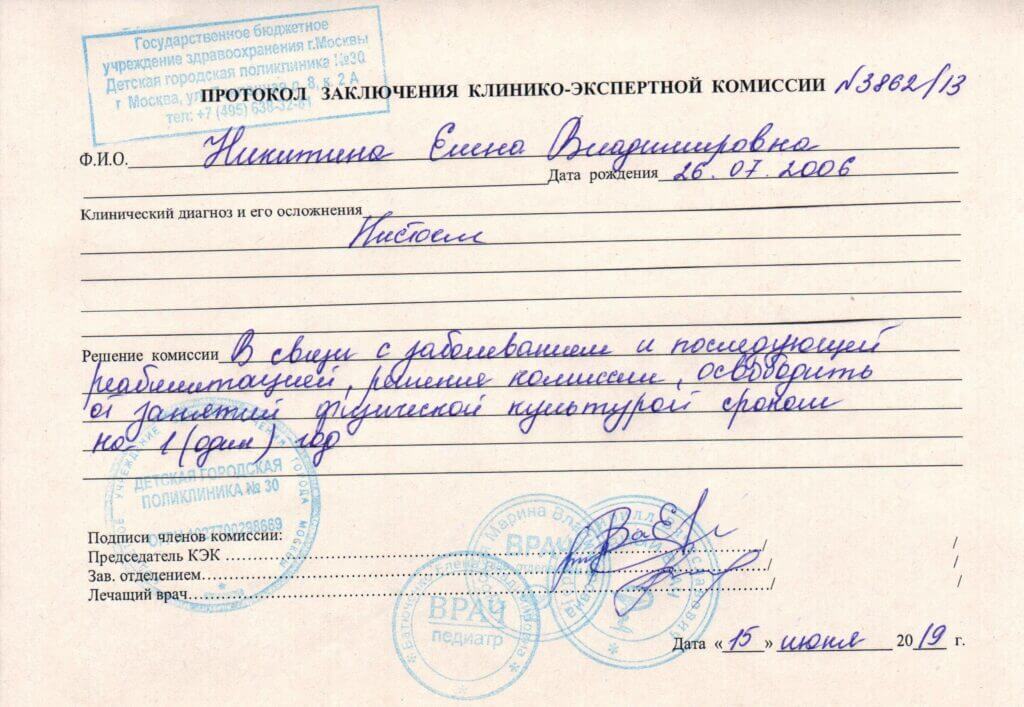 Государственное бюджетное
учреждение здравоохранения г.Москвы
Детская городская поликлиника №30
г Москва, ул. 8, к. 2 А
тел: +7 (495) 638-32-61
ПРОТОКОЛ ЗАКЛЮЧЕНИЯ КЛИНИКО-ЭКСПЕРТНОЙ КОМИССИИ №3862/13
Ф.И.О. Никитина Елена Владимировна
Дата рождения 26.07.2006
Клинический диагноз и его осложнения
Решение комиссии В связи с заболеванием и последующей
реабилитацией, решение комиссии, освободить
от занятий физической культурой сроком
на 1 (один) год
ДЕТСКАЯ ГОРОДСКАЯ
ПОЛИКЛИНИКА № 30
Подписи членов комиссии:
Председатель КЭК ...../ /
Зав. отделением...../ /
Лечащий врач...../ /
ВРАЧ
ВРАЧ
педиатр
Дата «15» июня 2019 г.